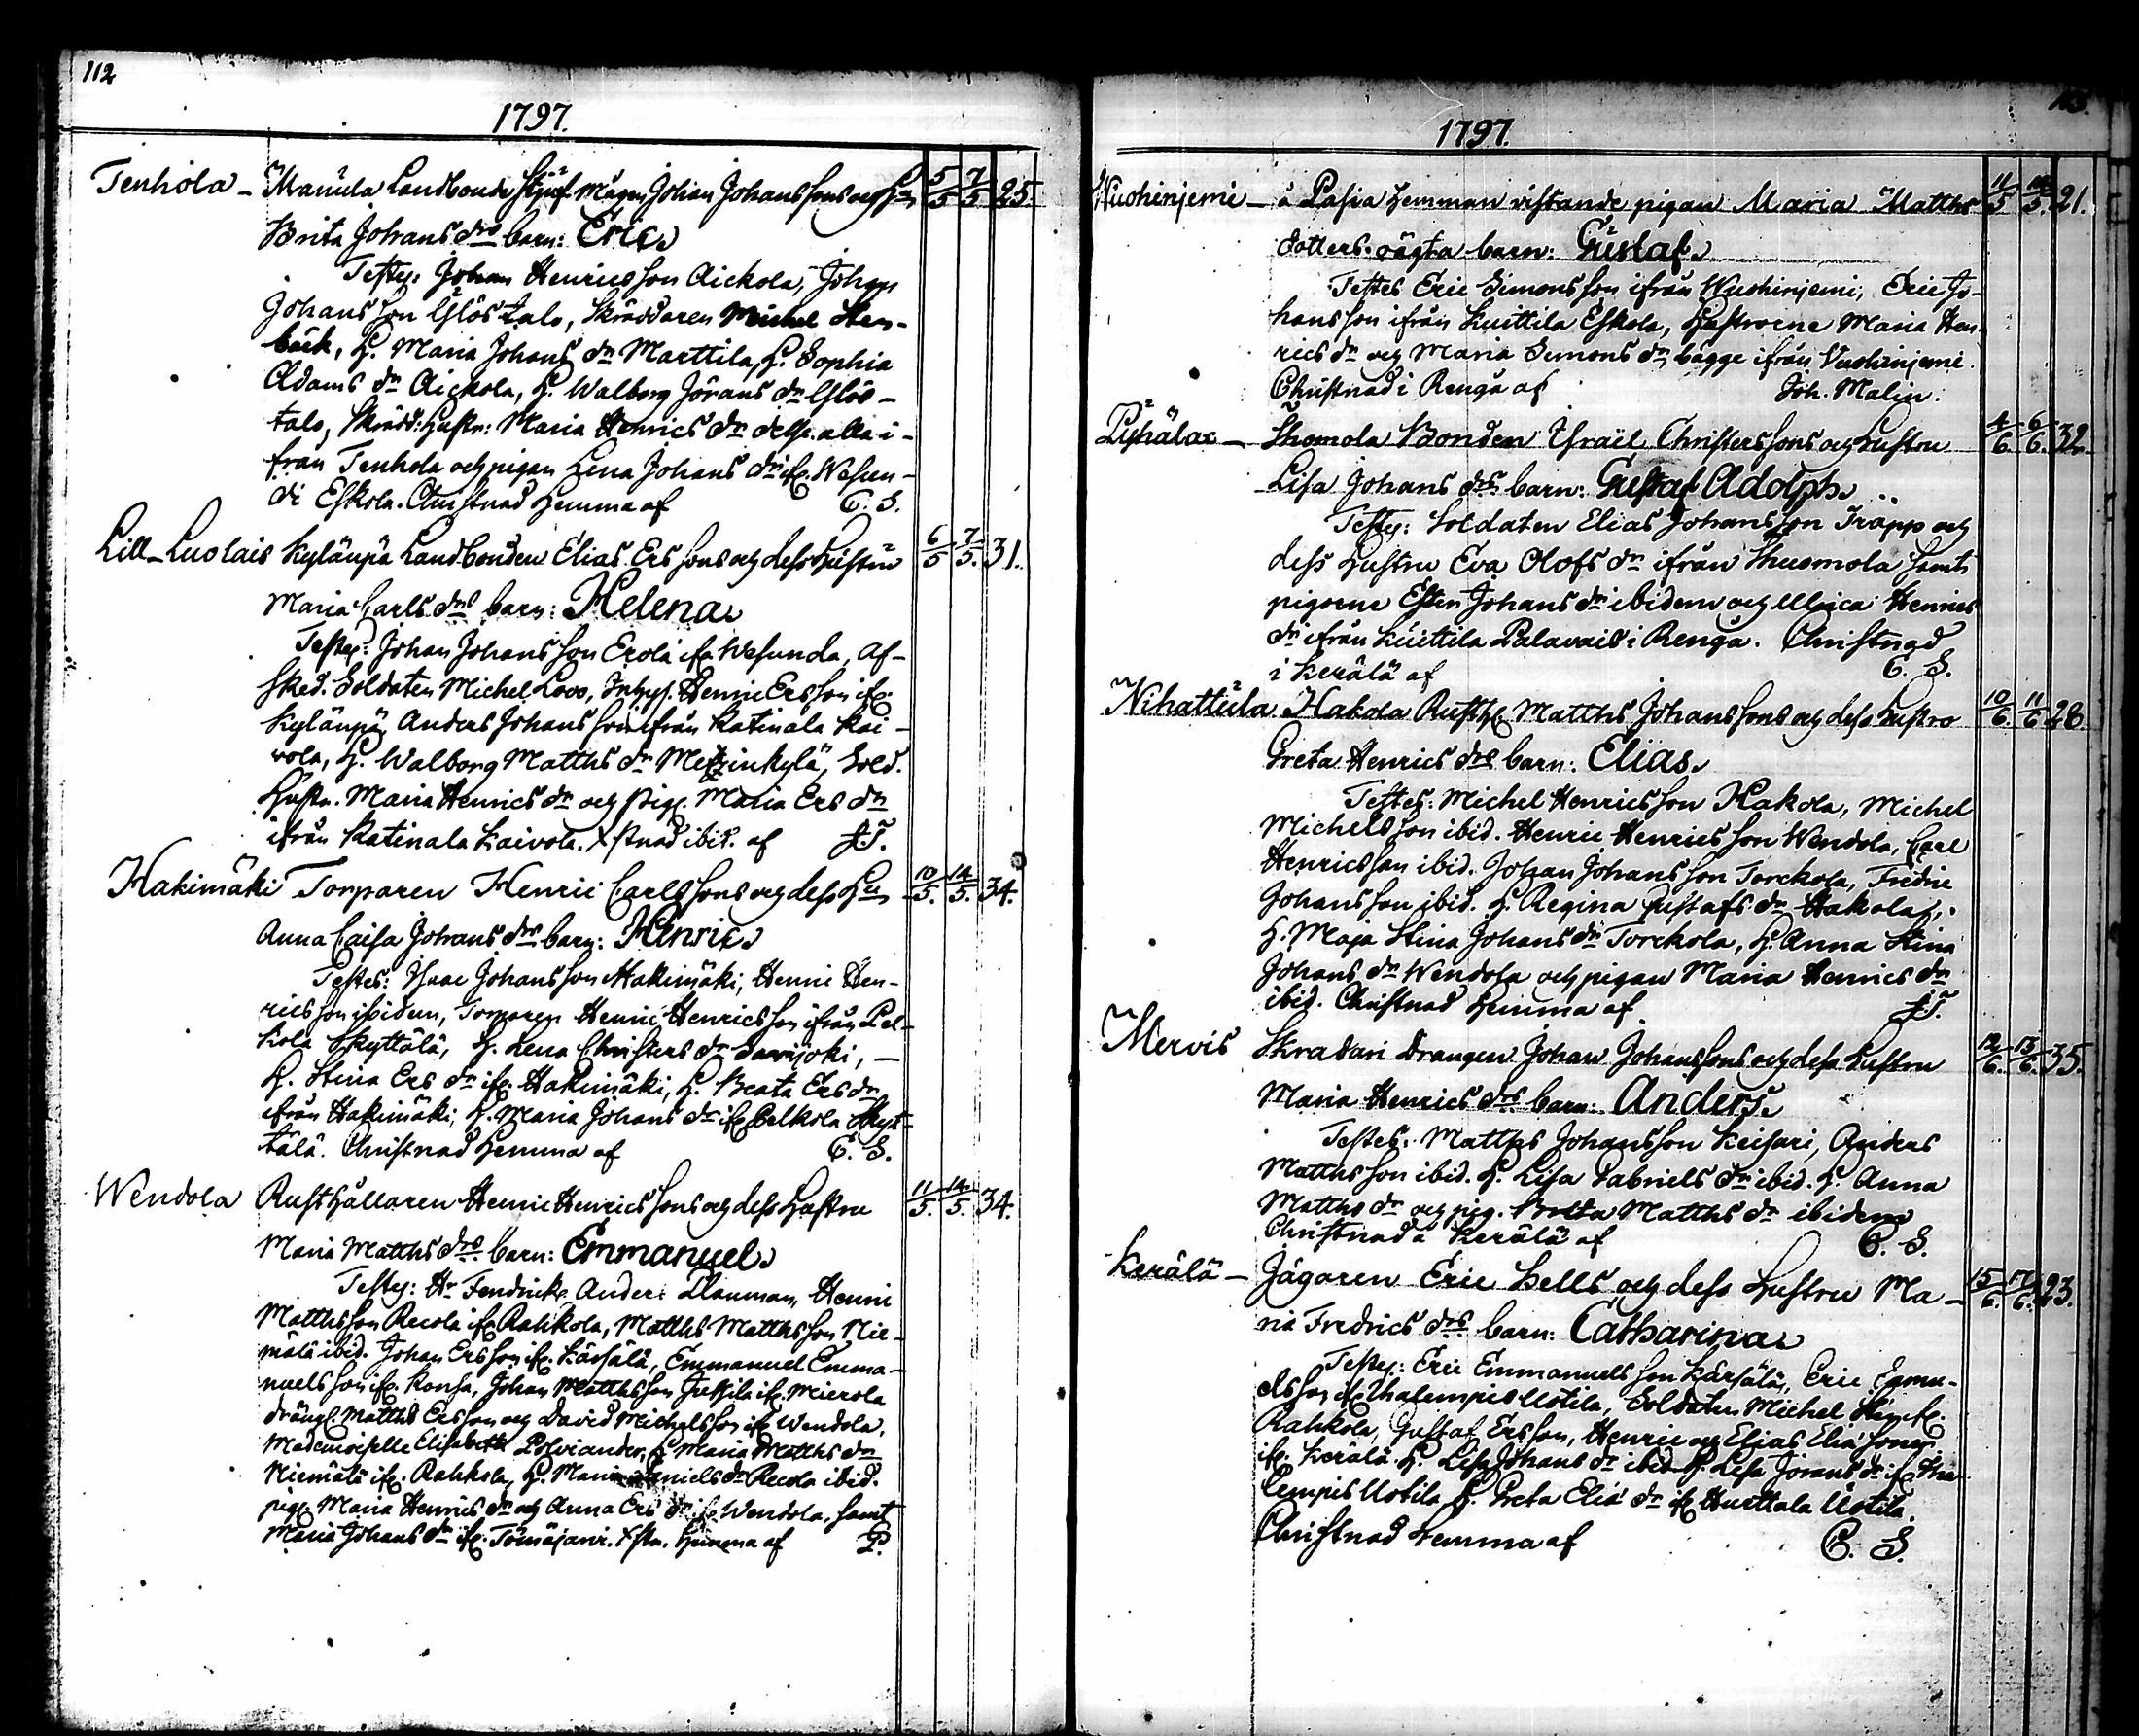 112
1797.
Tenhola - Manula Landbonde Mågen Johan Johanssons och Hu 5/5 7/5 25.
Brita Johans drs barn: Eric
Testes: Johan Henricsson Aickola, Johan
Johansson Ylöstalo, Skräddaren Michel Sten-
bäck, H. Maria Johans dr Marttila, H. Sophia
Adams dr Aickola, H. Walborg Jörans dr Ylös-
talo, Skrädd: Hustr: Maria Henrics dr alla i-
från Tenhola och pigan Lena Johans dr ifr. Wesun-
di Eskola. Christnad hemma af C. S.
Lill-Luolais Kylänpä Landbonden Elias Ers sons och dess Hustru 6/5 7/5. 31.
Maria Carls drs barn: Helena
Testes: Johan Johansson Erola ifr Wesunda, af-
sked. Soldaten Michel Lovo, Inhys. Henric Ersson ifr.
Kylänpä, Anders Johansson ifrån Katinala Kai-
vola, H. Walborg Matths dr Metzinkylä, Sold.
Hustr. Maria Henrics dr och pig. Maria Ers dr
ifrån Katinala Kaivola. Xstnad ibid. af
Hakimäki Torparen Henric Carlssons och dess Hu 10/5. 14/5. 34.
Anna Caisa Johans drs barn: Henric
Testes: Isaac Johansson Hakimäki, Henric Hen-
ricsson ibidem, Torparen Henric Henricsson ifrån Pel-
kola Skyttälä, H. Lena Christers dr Savijoki, -
H. Stina Ers dr ifr. Hakimäki, H. Beata Ers dr
ifrån Hakimäki, H. Maria Johans dr ifr Pelkola Skyt-
tälä. Christnad hemma af C. S.
Wendola Rusthållaren Henric Henrics sons och dess Hustru 11/5. 14/5. 34.
Maria Matths drs barn: Emmanuel
Testes: Hr Fendrick Anders Henric
Matthsson Recola ifr Rahkola, Matths Matthsson Nie-
mälä ibid. Johan Ersson ifr. Kärsälä, Emmanuel Emma-
nuelsson ifr. Konsa, Johan Matthsson Jussila ifr. Meierola
dräng. Matths Ersson och David Michelsson ifr Wendola,
Mademoiselle Elisabeth Polviander, H Maria Matths dr
Niemälä ifr. Rahkola, H. Maria Daniels dr Recola ibid.
pig. Maria Henrics dr och Anna Ers dr ifr Wendola, samt
Maria Johans dr ifr. Tömäjärvi. Xstn. hemma af
113.
1797.
Wuohinjemi - å Pasia hemman vistande pigan Maria Matths 11/5 14/5. 21.
dotters oägta barn: Gustaf
Testes Eric Simonsson ifrån Wuohinjemi, Eric Jo-
hansson ifrån Kuittila Eskola, Hustrorne Maria Hen-
rics dr och Maria Simons dr bägge ifrån Vuohinjemi.
Christnad i Rengå af Joh. Malin.
- Bonden Israël Christerssons och Hustru 4/6. 6/6. 32.
Lisa Johans drs barn: Gustaf Adolph
Testes: Soldaten Elias Johansson Trapp och
dess Hustru Eva Olofs dr ifrån samt
pigorne Johans dr ibidem och Ulrica Henrics
dr ifrån Kuittila Palavais i Renga. Christnad
i Kerälä af C. S.
Nihattula Hakola Rusth. Matths Johanssons och dess Hustro 10/6. 11/6 28.
Greta Henrics drs barn: Elias
Testes: Michel Henricsson Hakola, Michel
Michelsson ibid. Henric Henricsson Wendola, Carl
Henricsson ibid. Johan Johansson Torckola, Fredric
Johansson ibid. H. Regina Gustafs dr Hakola,
H. Maja Stina Johans dr Torckola, H. Anna Stina
Johans dr Wendola och pigan Maria Henrics dr
ibid. Christnad hemma af
Mervis Skradari Drängen Johan Johanssons och dess Hustru 12/6. 13/6. 35.
Maria Henrics drs barn: Anders
Testes: Matths Johansson Keisari, Anders
Matthsson ibid. H. Lisa Gabriels dr ibid. H. Anna
Matths dr och pig. Brita Matths dr ibidem
Christnad å Kerälä af C. S.
Kerälä - Jägaren Eric Hells och dess Hustru Ma- 15/6. 17/6. 23.
ria Fredrics drs barn: Catharina
Testes: Eric Emmanuelsson Kärsälä, Eric
elsson ifr Uotila, Soldaten Michel
Rahkola, Gustaf Ersson, Henric och Elias Elia
ifr. Kerälä. H. Lisa Johans dr ibid. H. Lisa Jörans dr ifr
lempis Uotila, H. Greta Elia dr ifr Hurttala Uotila.
Christnad hemma af C. S.